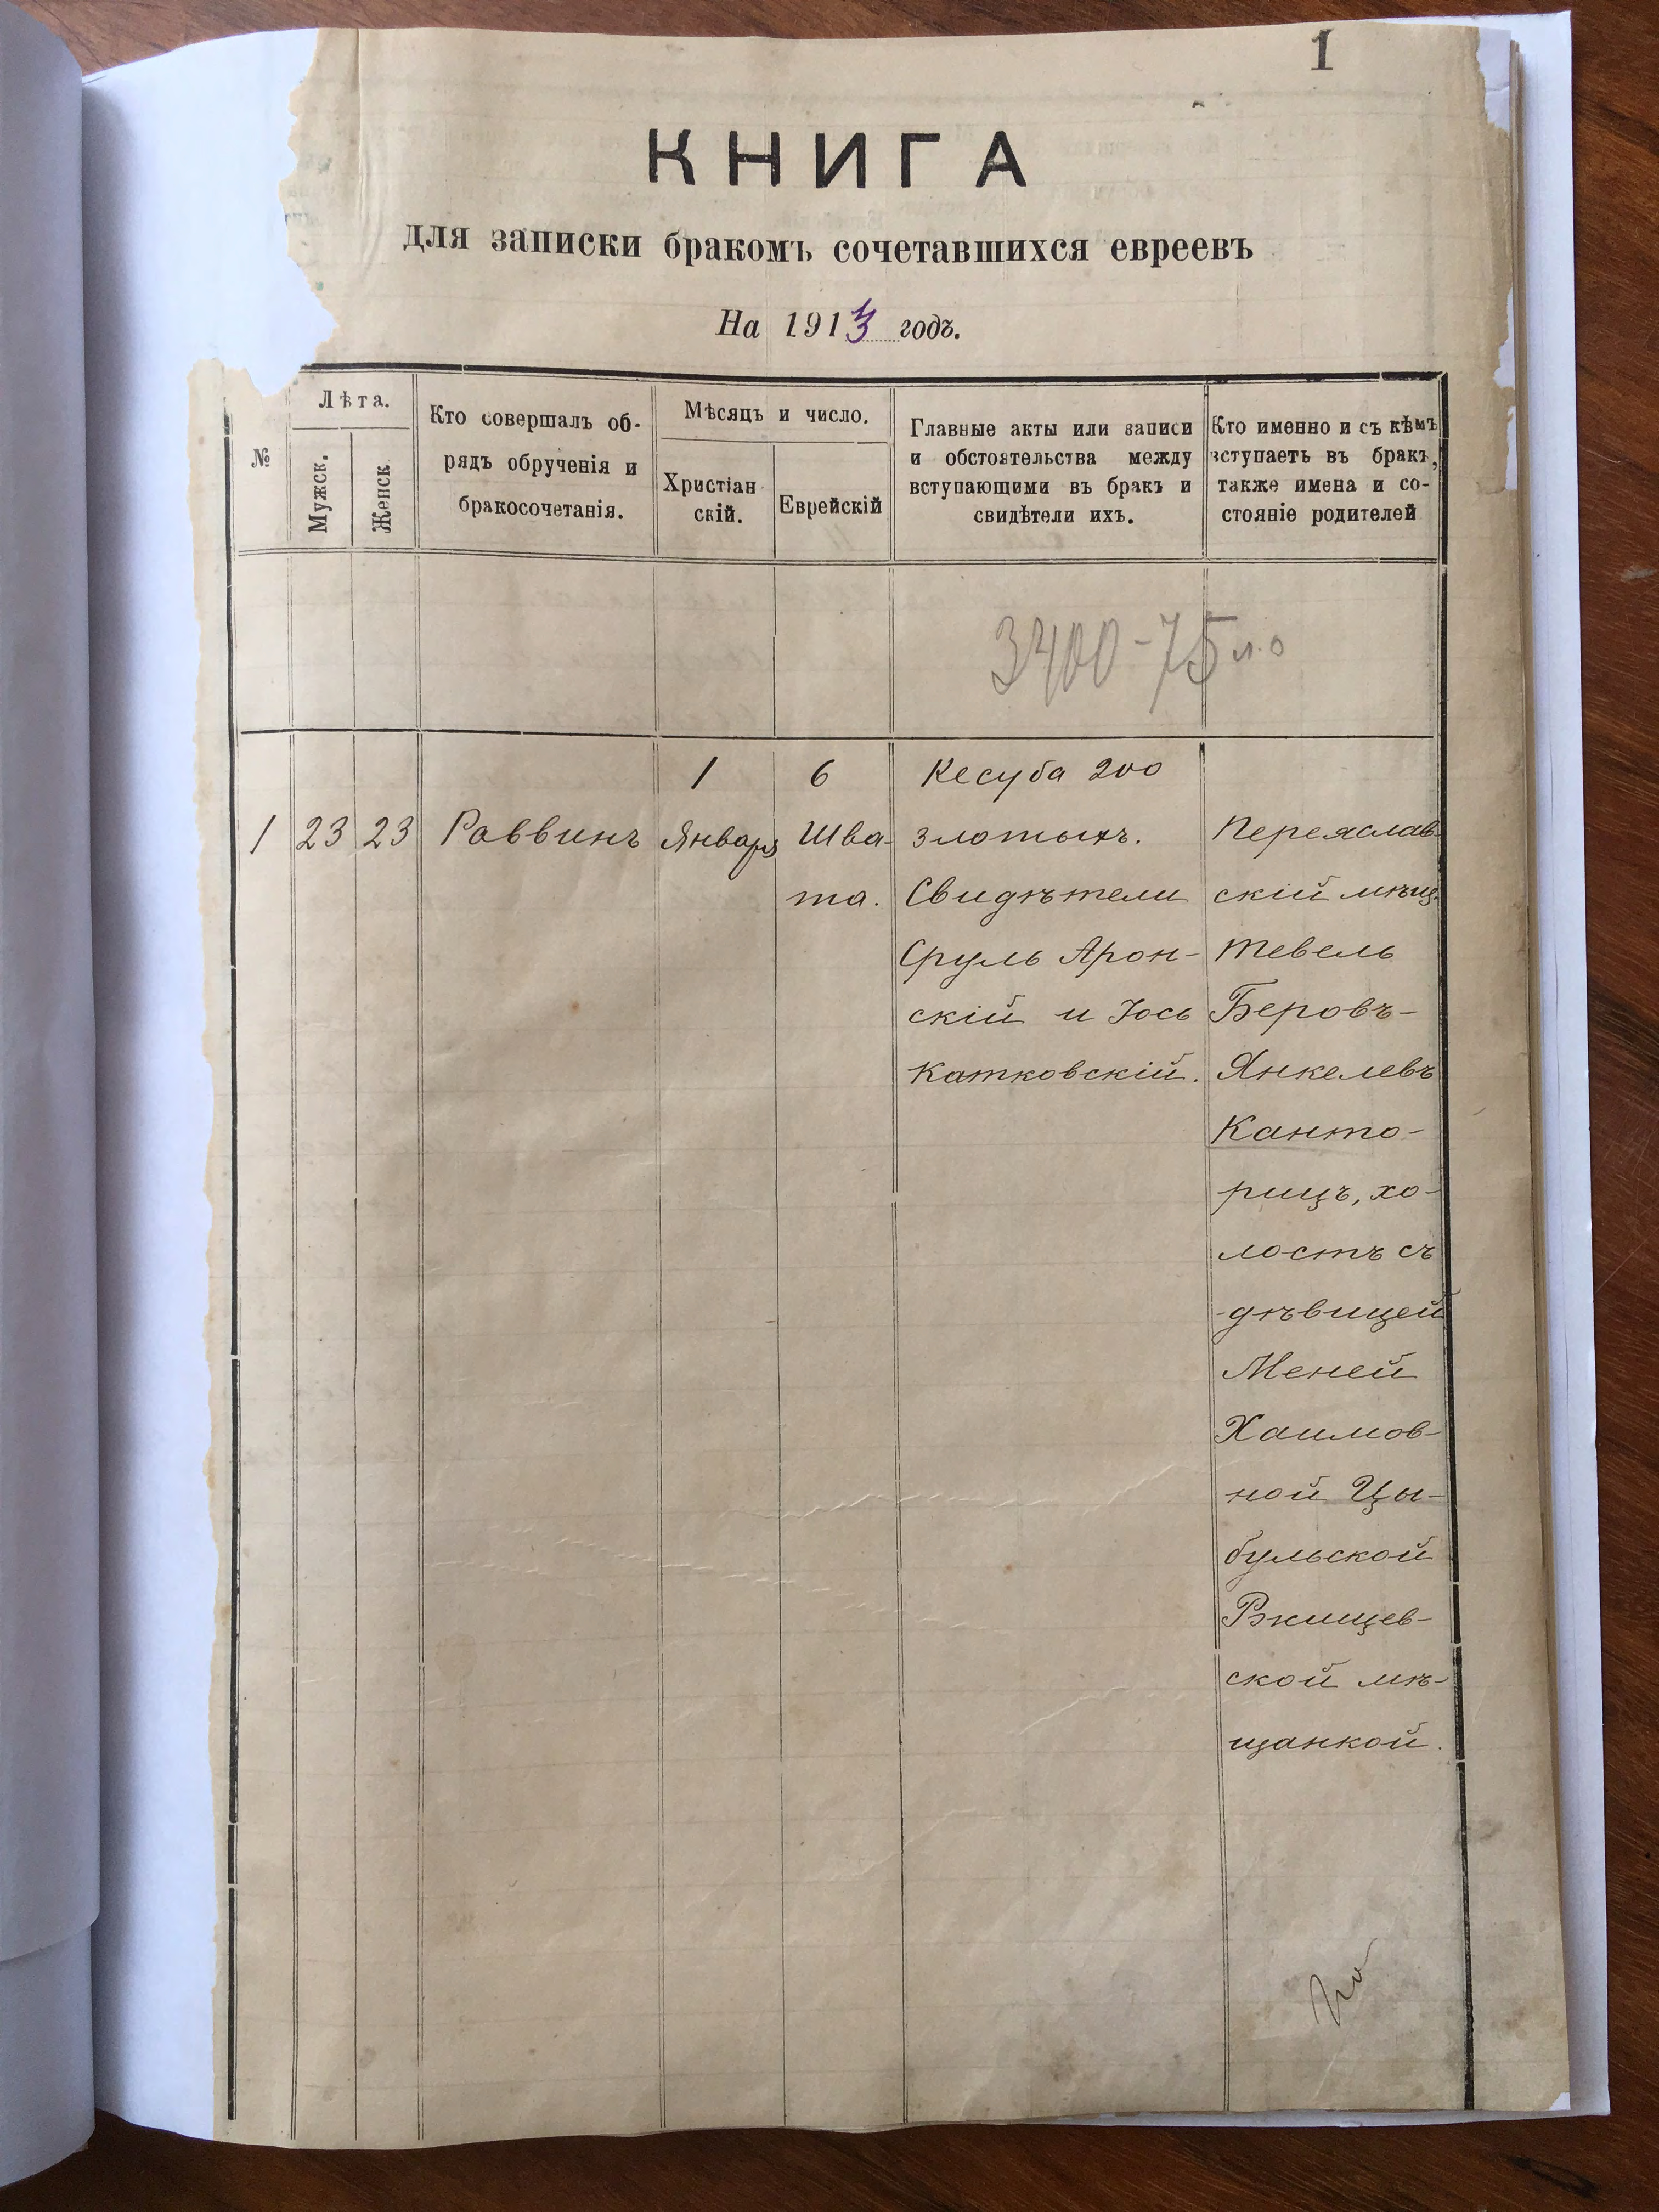 1
КНИГА
для записки бракомъ сочетавшихся евреевъ
На 1913 годъ.
№
Лѣта.
Мужск.
Женск
Кто совершалъ об-
рядъ обрученія и
бракосочетанія.
Мѣсяцъ и число.
Христіан
скій.
Еврейскій
Главные акты или записи
и обстоятельства между
вступающими въ бракъ и
свидѣтели ихъ.
Кто именно и съ кѣмъ
вступаетъ въ бракъ,
также имена и со-
стояніе родителей
3400-75 л.о
1
23
23
Раввинъ
1
Января
6
Шва-
та.
Кесуба 200
злотыхъ.
Свидѣтели
Сруль Арон-
скій и Іось
Катковскій.
Переяслав-
скій мѣщ.
Тевель
Беровъ-
Янкелевъ
Канто-
рицъ, хо-
лостъ съ
дѣвицей
Меней
Хаимов-
ной Цы-
бульской
Ржищев-
ской мѣ-
щанкой.